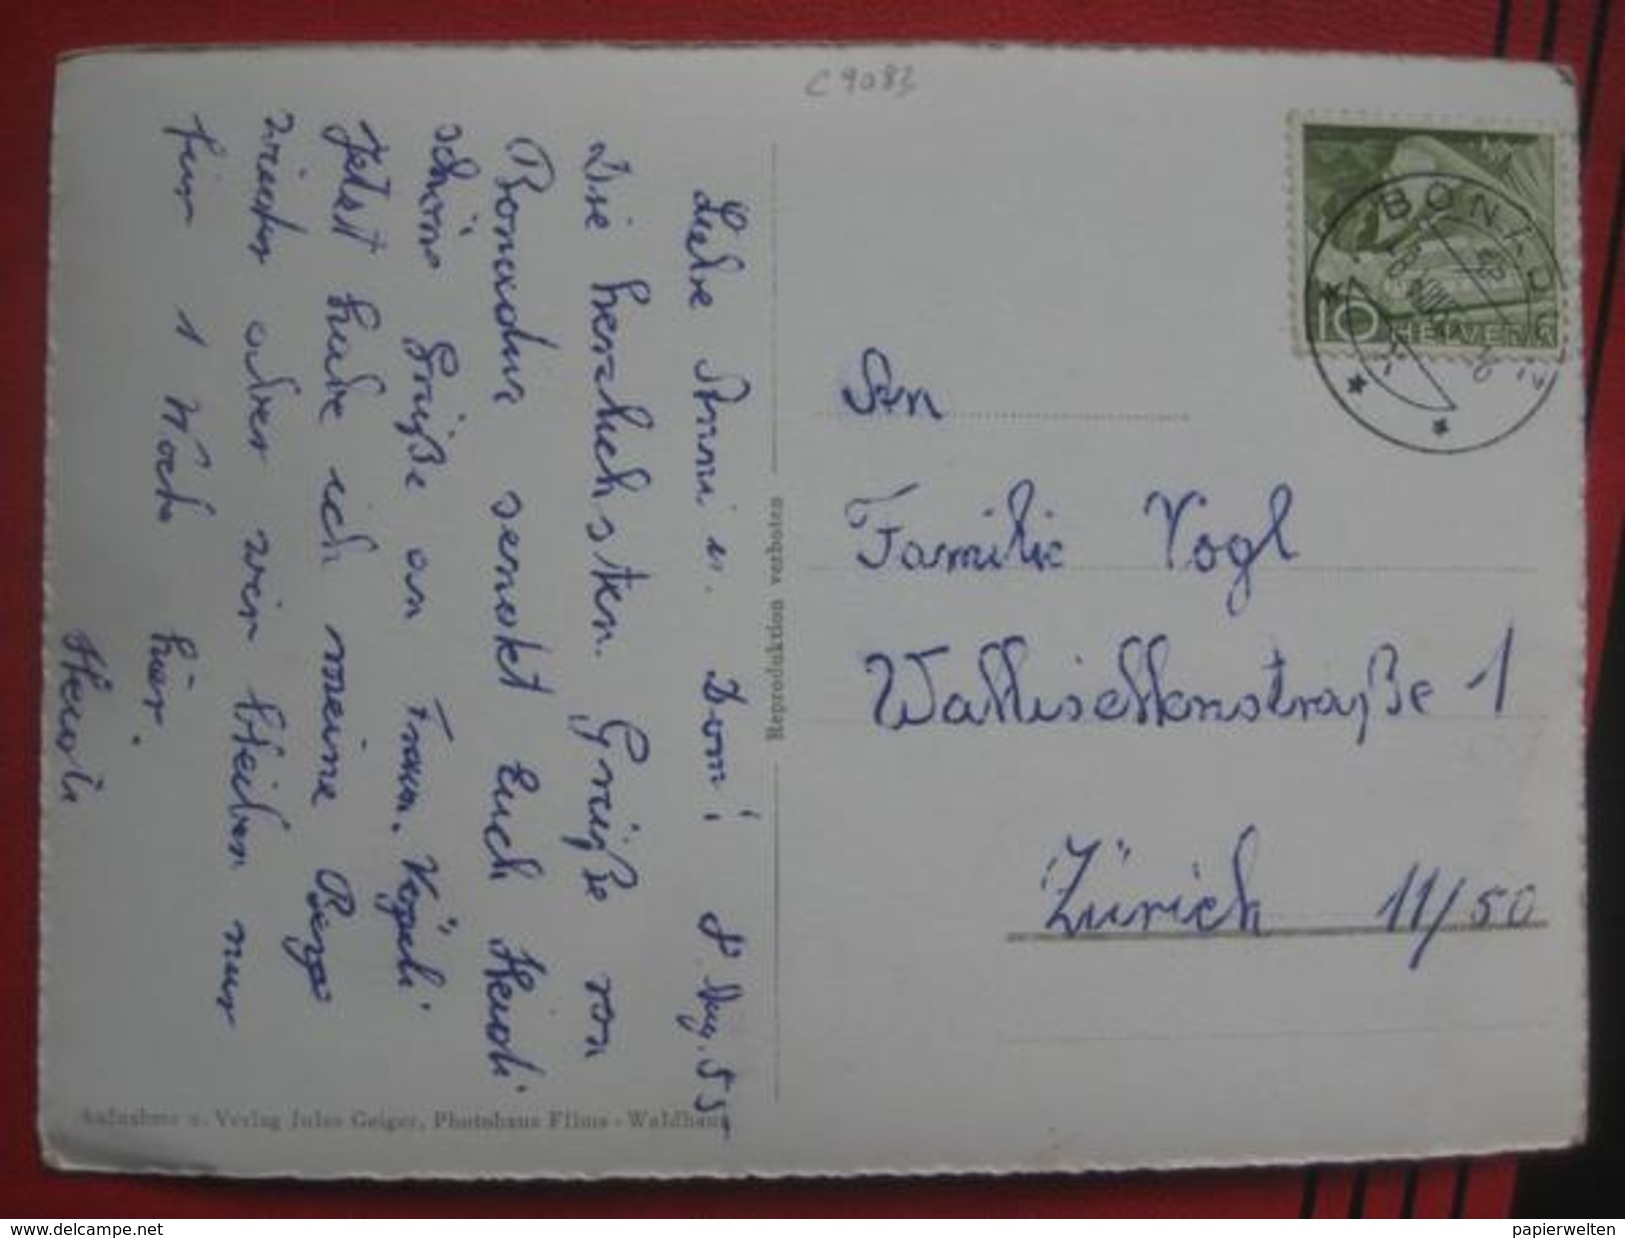 C 9083
Liebe Anni u. Domi! 8 Aug. 55
Die herzlichsten Grüße von
Bonaduz sendet Euch Heidi
schöne Grüße an Fraun. Vögeli
Jetzt habe ich meine Berge
wieder aber wir bleiben nur
hier 1 Woche hier.
Heidi
Aufnahme u. Verlag Jules Geiger, Photohaus Flims - Waldhaus
Reproduktion verboten
BONADUZ
10 HELVETIA
An
Familie Vogl
Wallisellenstraße 1
Zürich 11/50
www.delcampe.net
papierwelten